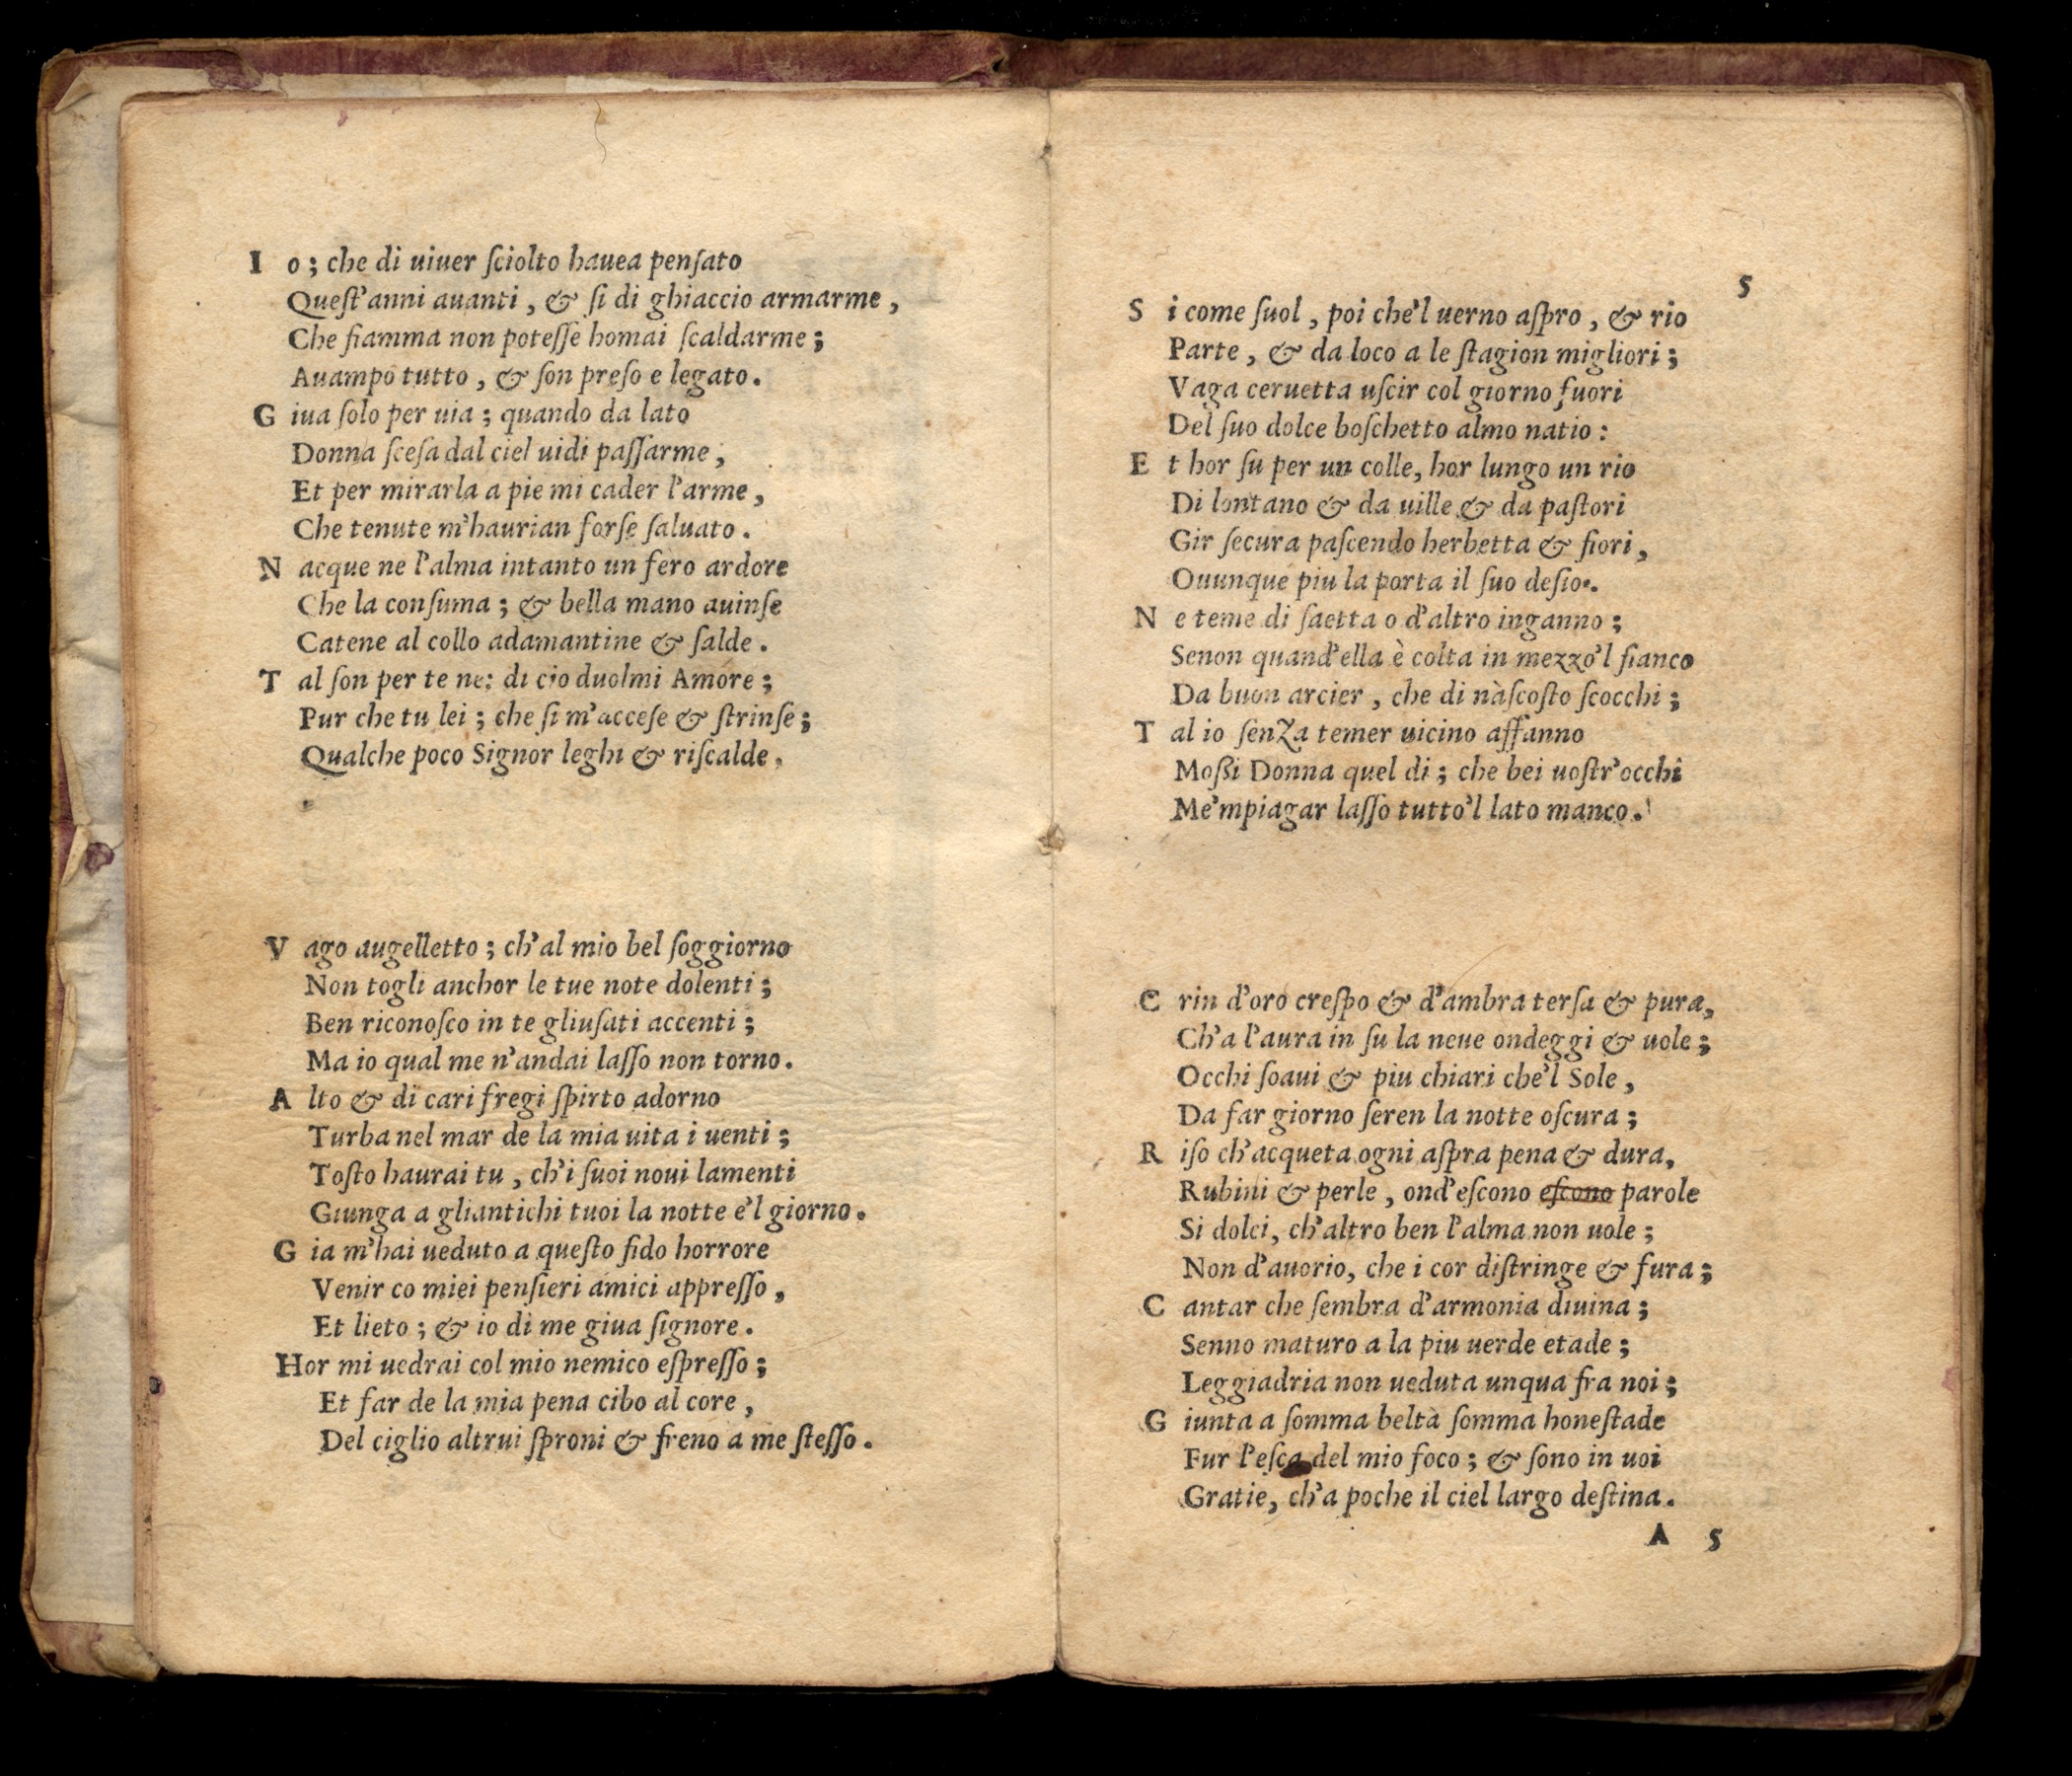 I o; che di uiuer ſciolto hauea penſato
Queſt'anni auanti, & ſi di ghiaccio armarme,
Che fiamma non poteſſe homai ſcaldarme;
Auampo tutto, & ſon preſo e legato.
G iua ſolo per uia; quando da lato
Donna ſceſa dal ciel uidi paſſarme;
Et per mirarla a pie mi cader l'arme,
Che tenute m'haurian forſe ſaluato.
N acque ne l'alma intanto un fero ardore
Che la conſuma; & bella mano auinſe
Catene al collo adamantine & ſalde.
T al ſon per te ne: di cio duolmi Amore;
Pur che tu lei; che ſi m'acceſe & ſtrinſe;
Qualche poco Signor leghi & riſcalde.
V ago augelletto; ch'al mio bel ſoggiorno
Non togli anchor le tue note dolenti;
Ben riconoſco in te gliuſati accenti;
Ma io qual me n'andai laſſo non torno.
A lto & di cari fregi ſpirto adorno
Turba nel mar de la mia uita i uenti;
Toſto haurai tu, ch'i ſuoi noui lamenti
Giunga a gliantichi tuoi la notte e'l giorno.
G ia m'hai ueduto a queſto fido horrore
Venir co miei penſieri amici appreſſo,
Et lieto; & io di me giua ſignore.
Hor mi uedrai col mio nemico eſpreſſo;
Et far de la mia pena cibo al core,
Del ciglio altrui ſproni & freno a me ſteſſo.
5
S i come ſuol, poi che'l uerno aſpro, & rio
Parte, & da loco a le ſtagion migliori;
Vaga ceruetta uſcir col giorno fuori
Del ſuo dolce boſchetto almo natio:
E t hor ſu per un colle, hor lungo un rio
Di lontano & da uille & da paſtori
Gir ſecura paſcendo herbetta & fiori,
Ouunque piu la porta il ſuo deſio.
N e teme di ſaetta o d'altro inganno;
Senon quand'ella è colta in mezzo'l fianco
Da buon arcier, che di nàſcoſto ſcocchi;
T al io ſenza temer uicino affanno
Moßi Donna quel di; che bei uoſtr'occhi
Me'mpiagar laſſo tutto'l lato manco.
C rin d'oro creſpo & d'ambra terſa & pura,
Ch'a l'aura in ſu la neue ondeggi & uole;
Occhi ſoaui & piu chiari che'l Sole,
Da far giorno ſeren la notte oſcura;
R iſo ch'acqueta ogni aſpra pena & dura,
Rubini & perle, ond'eſcono eſcono parole
Si dolci, ch'altro ben l'alma non uole;
Non d'auorio, che i cor diſtringe & fura;
C antar che ſembra d'armonia diuina;
Senno maturo a la piu uerde etade;
Leggiadria non ueduta unqua fra noi;
G iunta a ſomma beltà ſomma honeſtade
Fur l'eſca del mio foco; & ſono in uoi
Gratie, ch'a poche il ciel largo deſtina.
A 5